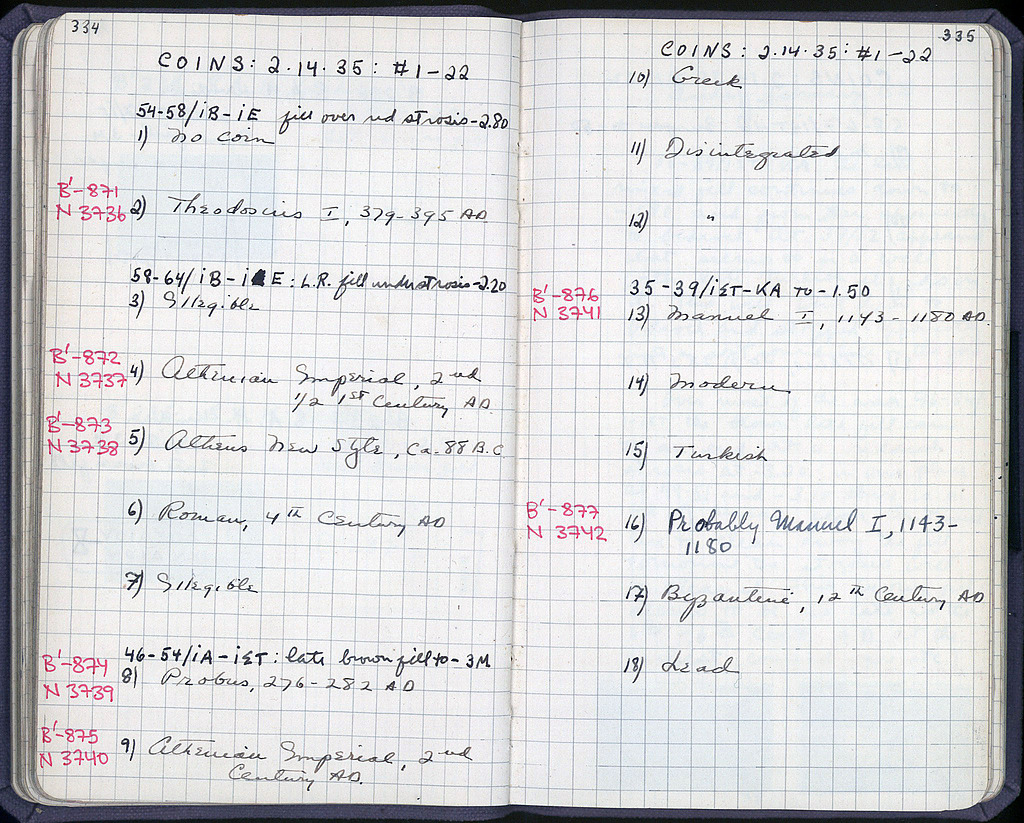 334
COINS: 2.14.35: #1-22
54-58/iB-iE fill over red strosis-2.80
1) No coin
B'-871
N 3736
2) Theodosius I, 379-395 AD
58-64/iB-iE: L.R. fill under strosis-2.20
3) Illegible
B'-872
N 3737
4) Athenian Imperial, 2nd
1/2 1st Century AD.
B'-873
N 3738
5) Athens New Style, ca. 88 B.C.
6) Roman, 4th Century AD
7) Illegible
46-54/iA-iET: late brown fill to - 3M
B'-874
N 3739
8) Probus, 276-282 AD
B'-875
N 3740
9) Athenian Imperial, 2nd
Century AD.
335
COINS: 2.14.35: #1-22
10) Greek
11) Disintegrated
12) "
B'-876
N 3741
35-39/iET-KA to -1.50
13) Manuel I, 1143-1180 AD.
14) Modern
15) Turkish
B'-877
N 3742
16) Probably Manuel I, 1143-
1180
17) Byzantine, 12th Century AD
18) Lead